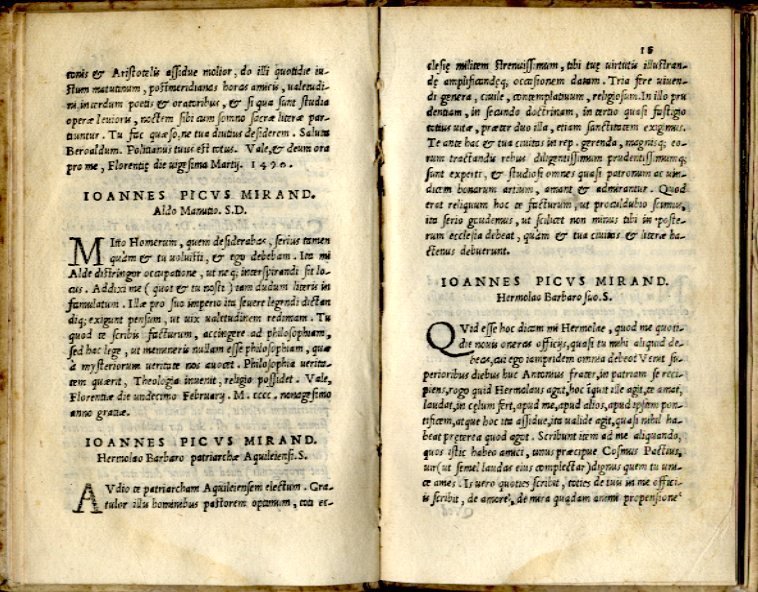 tonis & Aristotelis assidue molior, do illi quotidie iu-
stum matutinum, postmeridianas horas amicis, valetudi
ni, interdum poetis & oratoribus, & si qua sunt studia
operæ leuioris, noctem sibi cum somno sacræ literæ par-
tiuntur. Tu fac quæso, ne tua diutius desiderem. Saluta
Beroaldum. Politianus tuus est totus. Vale, & deum ora
pro me, Florentię die uigesima Martij. 1490.
IOANNES PICVS MIRAND.
Aldo Manutio. S.D.
MItto Homerum, quem desiderabas, serius tamen
quàm & tu uoluisti, & ego debebam. Ita mi
Alde distringor occupatione, ut neq; interspirandi sit lo
cus. Addixi me (quot & tu nosti) iam dudum literis in
famulatum. Illæ pro suo imperio ita seuere legendi dictan
diq; exigunt pensum, ut uix ualetudinem redimam. Tu
quod te scribis facturum, accingere ad philosophiam,
sed hac lege, ut memineris nullam esse philosophiam, quæ
à mysteriorum ueritate nos auocet. Philosophia verita-
tem quærit, Theologia inuenit, religio possidet. Vale,
Florentiæ die undecimo February. M. cccc. nonagesimo
anno gratiæ.
IOANNES PICVS MIRAND.
Hermolao Barbaro patriarchæ Aquileiensi. S.
AVdio te patriarcham Aquileiensem electum. Gra-
tulor illis hominibus pastorem optimum, toti ec-
18
clesię militem strenuissimum, tibi tuę virtutis illustran-
dę amplificandęq; occasionem datam. Tria fere viuen-
di genera, ciuile, contemplatiuum, religiosum. In illo pru
dentiam, in secundo doctrinam, in tertio quasi fastigio
totius uitæ, præter duo illa, etiam sanctitatem exigimus.
Te ante hac & tua ciuitas in rep. gerenda, magnisq; eo-
rum tractandis rebus diligentissimum prudentissimumq;
sunt experti, & studiosi omnes quasi patronum ac uin-
dicem bonarum artium, amant & admirantur. Quod
erat reliquum hoc te facturum, ut proculdubio scimus,
ita serio gaudemus, ut scilicet non minus tibi in poste-
rum ecclesia debeat, quàm & tua ciuitas & literæ ha-
ctenus debuerunt.
IOANNES PICVS MIRAND.
Hermolao Barbaro suo. S.
QVid esse hoc dicam mi Hermolae, quod me quoti-
die nouis oneras officijs, quasi tu mihi aliquid de-
beas, cui ego iampridem omnia debeo? Venit su-
perioribus diebus huc Antonius frater, in patriam se reci-
piens, rogo quid Hermolaus agit, hoc iquit ille agit, te amat,
laudat, in cęlum fert, apud me, apud alios, apud ipsum pon-
tificem, atque hoc ita assidue, ita valide agit, quasi nihil ha-
beat pręterea quod agat. Scribunt item ad me aliquando,
quos istic habeo amici, unus præcipue Cosmus Pactius,
uir (ut semel laudas eius complectar) dignus quem tu uni-
ce ames. Is uero quoties scribit, toties de tuis in me offici-
is scribit, de amore, de mira quadam animi propensione